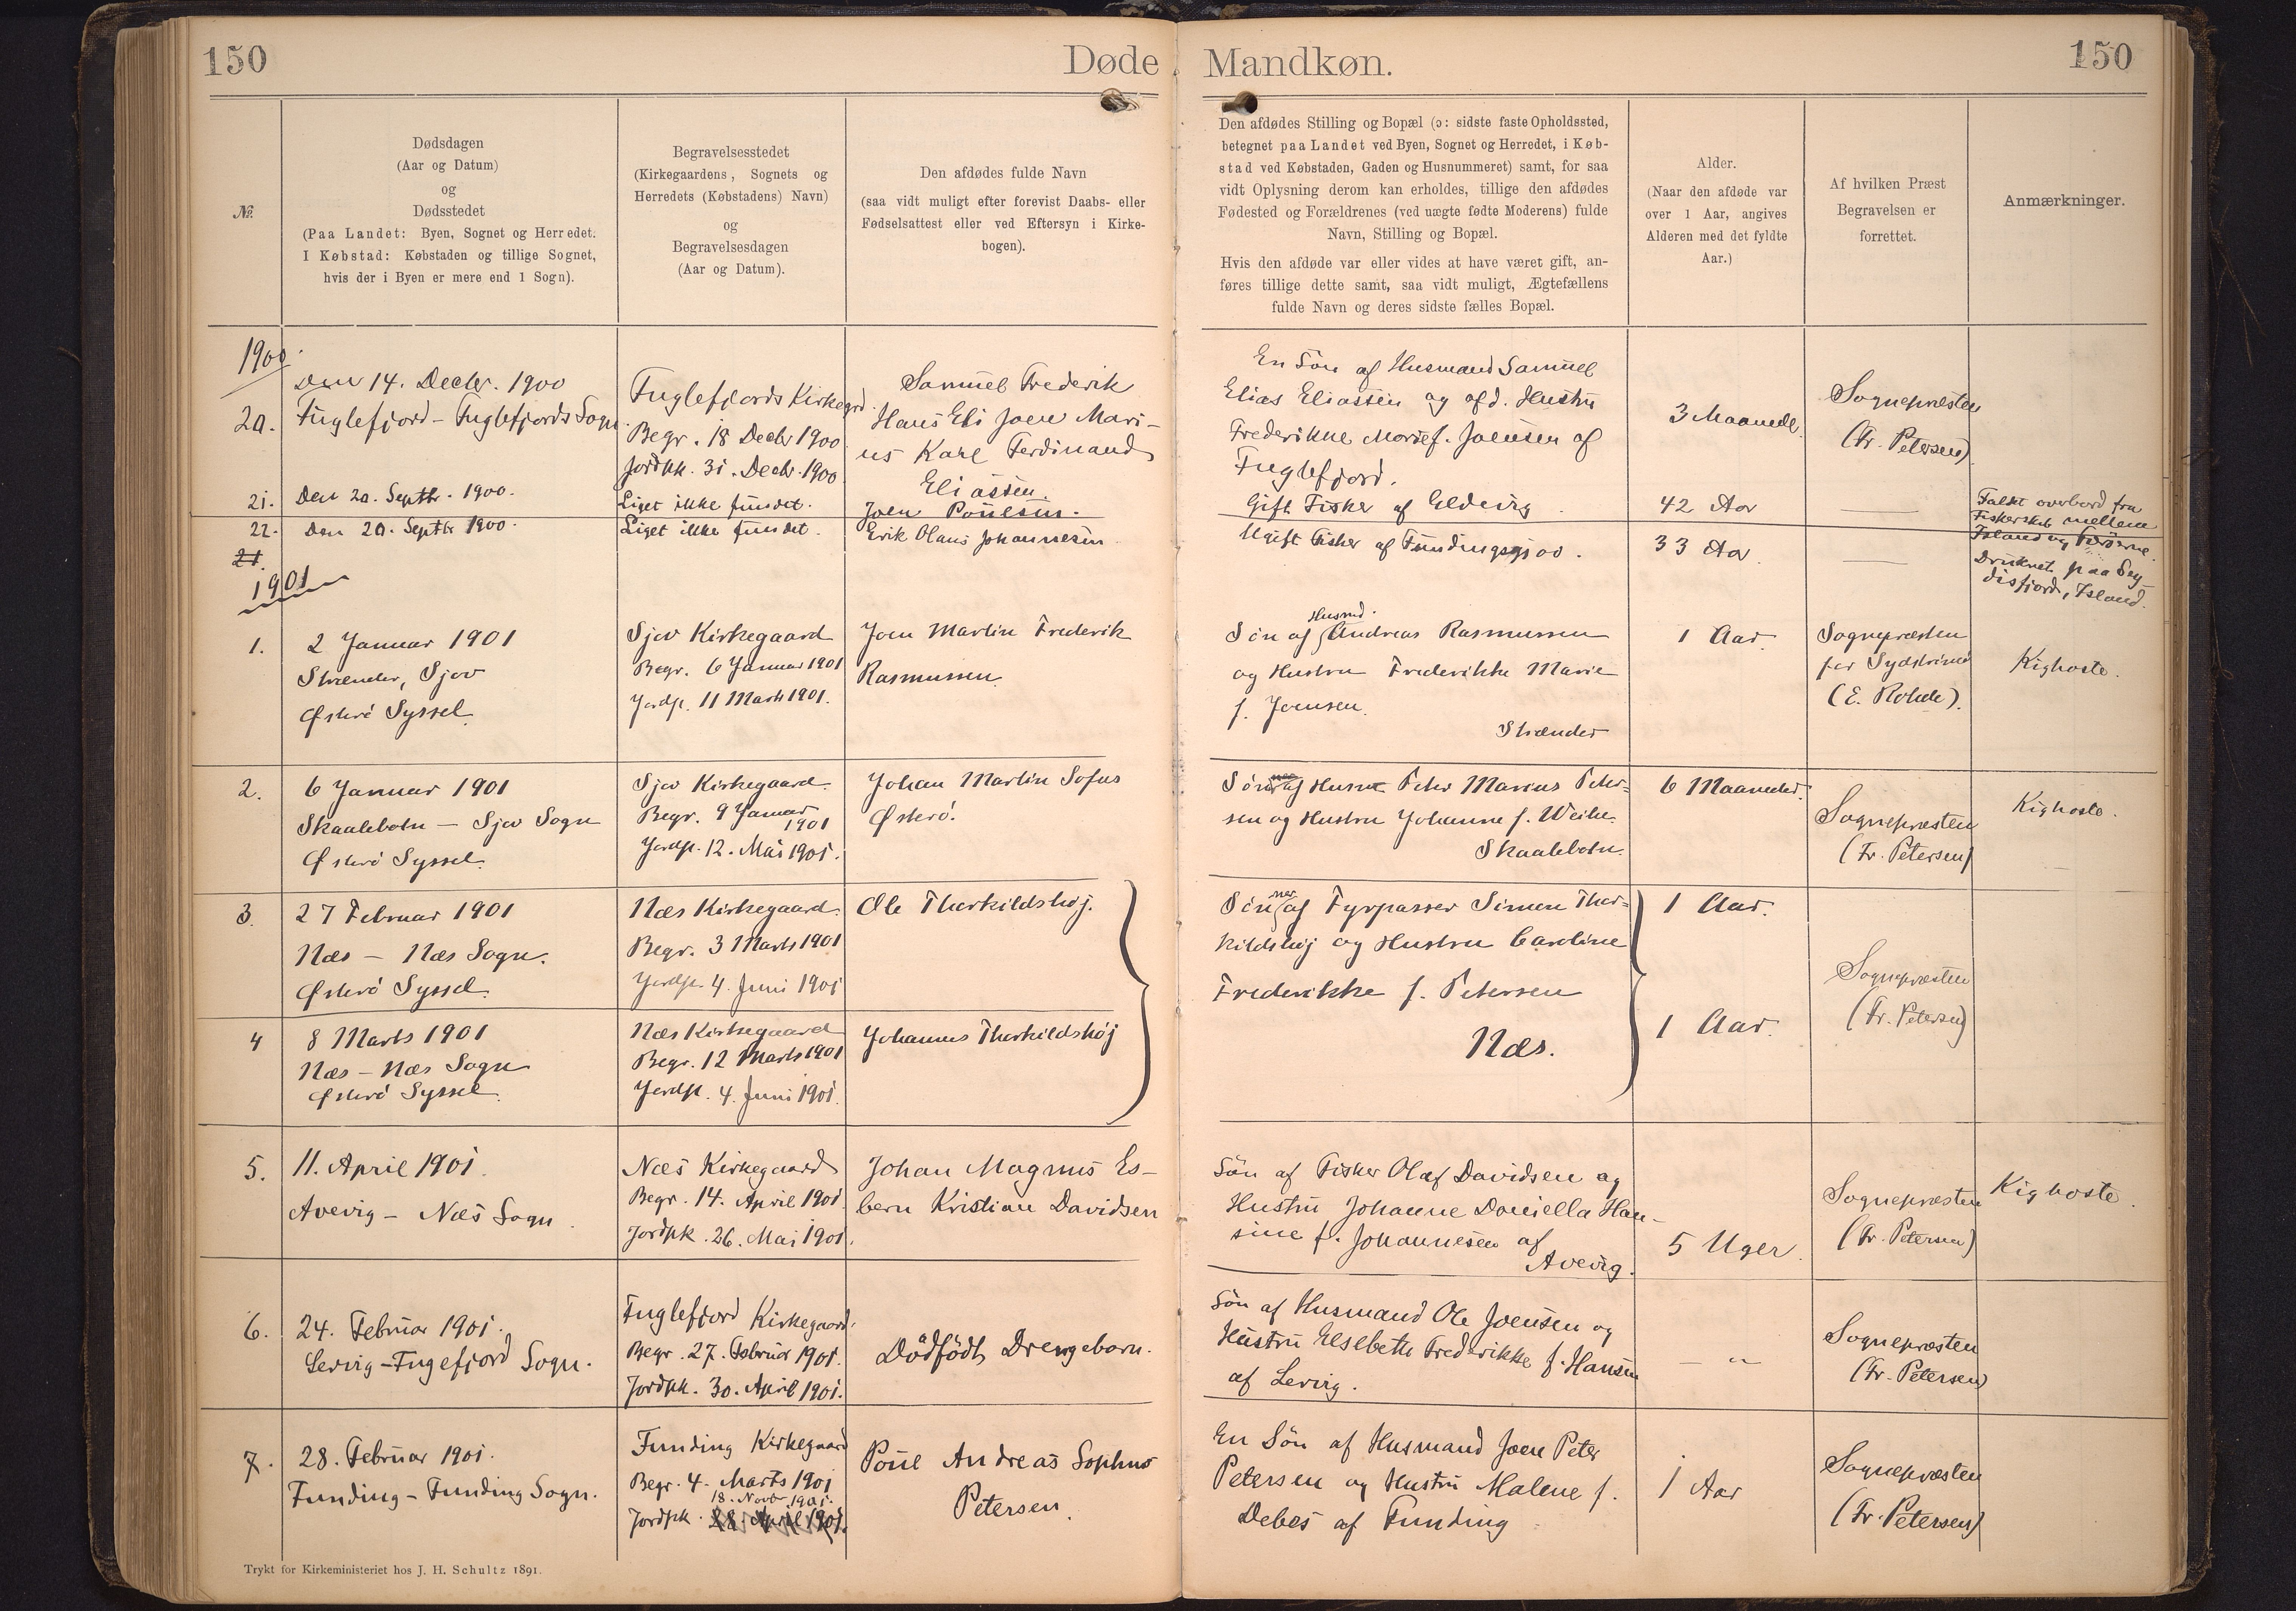 150
Døde
Mandkøn.
150
№
Dødsdagen
(Aar og Datum)
og
Dødsstedet
(Paa Landet: Byen, Sognet og Herredet.
I Købstad: Købstaden og tillige Sognet,
hvis der i Byen er mere end 1 Sogn).
Begravelsesstedet
(Kirkegaardens, Sognets og
Herredets (Købstadens) Navn)
og
Begravelsesdagen
(Aar og Datum).
Den afdødes fulde Navn
(saa vidt muligt efter forevist Daabs- eller
Fødselsattest eller ved Eftersyn i Kirke-
bogen).
Den afdødes Stilling og Bopæl (ɔ: sidste faste Opholdssted,
betegnet paa Landet ved Byen, Sognet og Herredet, i Køb-
stad ved Købstaden, Gaden og Husnummeret) samt, for saa
vidt Oplysning derom kan erholdes, tillige den afdødes
Fødested og Forældrenes (ved uægte fødte Moderens) fulde
Navn, Stilling og Bopæl.
Hvis den afdøde var eller vides at have været gift, an-
føres tillige dette samt, saa vidt muligt, Ægtefællens
fulde Navn og deres sidste fælles Bopæl.
Alder.
(Naar den afdøde var
over 1 Aar, angives
Alderen med det fyldte
Aar.)
Af hvilken Præst
Begravelsen er
forrettet.
Anmærkninger.
1900.
20.
Den 14. Decbr. 1900
Fuglefjord - Fuglefjords Sogn
Fuglefjords Kirkegrd.
Begr. 18 Decbr 1900
Jordpk. 31. Decbr. 1900
Samuel Frederik
Hans Eli Joen Mari-
us Karl Ferdinand
Eliassen.
En Søn af Husmand Samuel
Elias Eliassen og afd. Hustru
Frederikke f. Joensen af
Fuglefjord.
3 Maaneder.
Sognepræsten
(Fr. Petersen)
21.
Den 20. Septbr. 1900.
Liget ikke fundet.
Joen Poulsen.
Gift Fisker af Eldevig
42 Aar
Faldt overbord fra
Fiskerskib mellem
Island og Færøerne.
22.
Den 20. Septbr 1900.
Liget ikke fundet.
Erik Olaus Johannesen
Ugift Fisker af Fundingsgjov.
33 Aar
Druknet paa Sey-
disfjord, Island.
21.
1901
1.
2 Januar 1901
Strænder, Sjov
Østerö Syssel.
Sjov Kirkegaard
Begr. 6 Januar 1901
Jordp. 11 Marts 1901.
Joen Martin Frederik
Rasmussen
Husmd.
Søn af Andreas Rasmussen
og Hustru Frederikke Marie
f. Joensen.
Strænder
1 Aar.
Sognepræsten
for Sydströmö
(E. Rohde).
Kighoste.
2.
6 Januar 1901
Skaalebotn - Sjov Sogn
Østerö Syssel.
Sjov Kirkegaard.
Begr. 9 Januar
1901
Jordp. 12. Mai 1901.
Johan Martin Sofus
Østerö.
Søn af Husm. Peter Marius Peter-
sen og Hustru Johanne f. Weihe.
Skaalebotn.
6 Maaneder.
Sognepræsten
(Fr. Petersen)
Kighoste.
3.
27 Februar 1901
Næs - Næs Sogn.
Østerö Syssel.
Næs Kirkegaard.
Begr. 3 Marts 1901
Jordp. 4. Juni 1901
Ole Therkildshøj.
ner
Søn af Fyrpasser Simon Ther-
kildshøj og Hustru Caroline
Frederikke f. Petersen
Næs.
1 Aar.
Sognepræsten
(Fr. Petersen)
4
8 Marts 1901
Næs - Næs Sogn
Østerö Syssel.
Næs Kirkegaard
Begr. 12 Marts 1901
Jordp. 4. Juni 1901.
Johannes Therkildshøj
1 Aar.
5.
11. April 1901.
Avevig - Næs Sogn.
Næs Kirkegaard
Begr. 14. April 1901.
Jordpk. 26. Mai 1901.
Johan Magnus Es-
bern Kristian Davidsen
Søn af Fisker Olaf Davidsen og
Hustru Johanne Daniella Han-
sine f. Johannesen af
Avevig.
5 Uger.
Sognepræsten
(Fr. Petersen)
Kighoste.
6.
24. Februar 1901.
Lervig - Fugefjord Sogn.
Fuglefjord Kirkegaard.
Begr. 27. Februar 1901.
Jordpk. 30. April 1901.
Dödfödt Drengebarn.
Søn af Husmand Ole Joensen og
Hustru Elsebeth Frederikke f. Hansen
af Lervig.
— " —
Sognepræsten
(Fr. Petersen)
7.
28. Februar 1901.
Funding - Funding Sogn.
Funding Kirkegaard
Begr. 4. Marts 1901
18. Novbr. 1901.
Jordpk. 28. April 1901.
Poul Andreas Sophus
Petersen.
En Søn af Husmand Joen Peter
Petersen og Hustru Malene f.
Debes af Funding
1 Aar
Sognepræsten
(Fr. Petersen)
Trykt for Kirkeministeriet hos J. H. Schultz 1891.